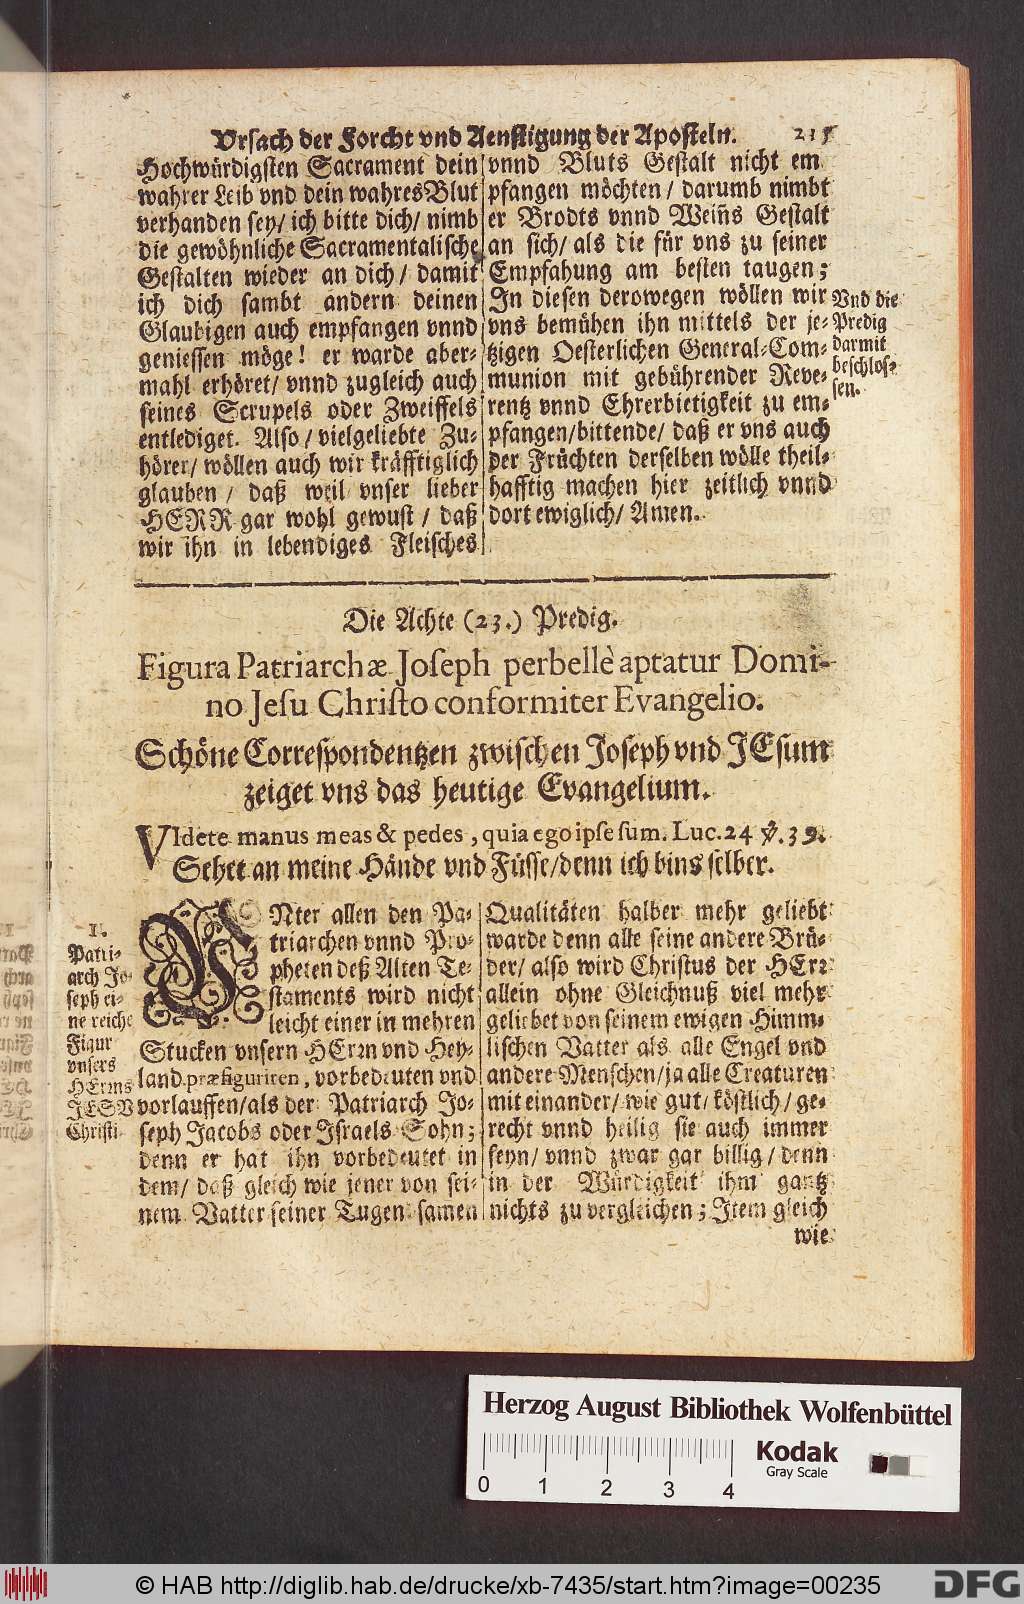 Vrsach der Forcht vnd Aenstigung der Aposteln. 215
Hochwürdigsten Sacrament dein
wahrer Leib vnd dein wahres Blut
verhanden sey/ ich bitte dich/ nimb
die gewöhnliche Sacramentalische
Gestalten wieder an dich/ damit
ich dich sambt andern deinen
Glaubigen auch empfangen vnnd
geniessen möge! er warde aber-
mahl erhöret/ vnnd zugleich auch
seines Scrupels oder Zweiffels
entlediget. Also/ vielgeliebte Zu-
hörer/ wöllen auch wir kräfftiglich
glauben / daß weil vnser lieber
HERR gar wohl gewust / daß
wir ihn in lebendiges Fleisches
vnnd Bluts Gestalt nicht em
pfangen möchten/ darumb nimbt
er Brodts vnnd Weins Gestalt
an sich/ als die für vns zu seiner
Empfahung am besten taugen;
In diesen derowegen wöllen wir
vns bemühen ihn mittels der je-
tzigen Oesterlichen General-Com-
munion mit gebührender Reve-
rentz vnnd Ehrerbietigkeit zu em-
pfangen/bittende/ daß er vns auch
der Früchten derselben wölle theil-
hafftig machen hier zeitlich vnnd
dort ewiglich/ Amen.
Vnd die
Predig
darmit
beschlos-
sen.
Die Achte (23.) Predig.
Figura Patriarchæ Joseph perbellè aptatur Domi-
no Jesu Christo conformiter Evangelio.
Schöne Correspondentzen zwischen Joseph vnd JEsum
zeiget vns das heutige Evangelium.
VIdete manus meas & pedes, quia ego ipse sum. Luc. 24 ℣. 39.
Sehet an meine Hände vnd Füsse/denn ich bins selber.
1.
Patri-
arch Jo-
seph ei-
ne reiche
Figur
vnsers
HErrns
JESV
Christi
VNter allen den Pa-
triarchen vnnd Pro-
pheten deß Alten Te-
staments wird nicht
leicht einer in mehren
Stucken vnsern HErrn vnd Hey-
land præfiguriren, vorbedeuten vnd
vorlauffen/als der Patriarch Jo-
seph Jacobs oder Israels Sohn;
denn er hat ihn vorbedeutet in
dem/ daß gleich wie jener von sei-
nem Vatter seiner Tugentsamen
Qualitäten halber mehr geliebt
warde denn alle seine andere Brü-
der/ also wird Christus der HErr
allein ohne Gleichnuß viel mehr
geliebet von seinem ewigen Himm-
lischen Vatter als alle Engel vnd
andere Menschen/ja alle Creaturen
mit einander/ wie gut/ köstlich/ ge-
recht vnnd heilig sie auch immer
seyn/ vnnd zwar gar billig/ denn
in der Würdigkeit ihm gantz
nichts zu vergleichen; Item gleich
wie
Herzog August Bibliothek Wolfenbüttel
Kodak
Gray Scale
0 1 2 3 4
© HAB http://diglib.hab.de/drucke/xb-7435/start.htm?image=00235
DFG